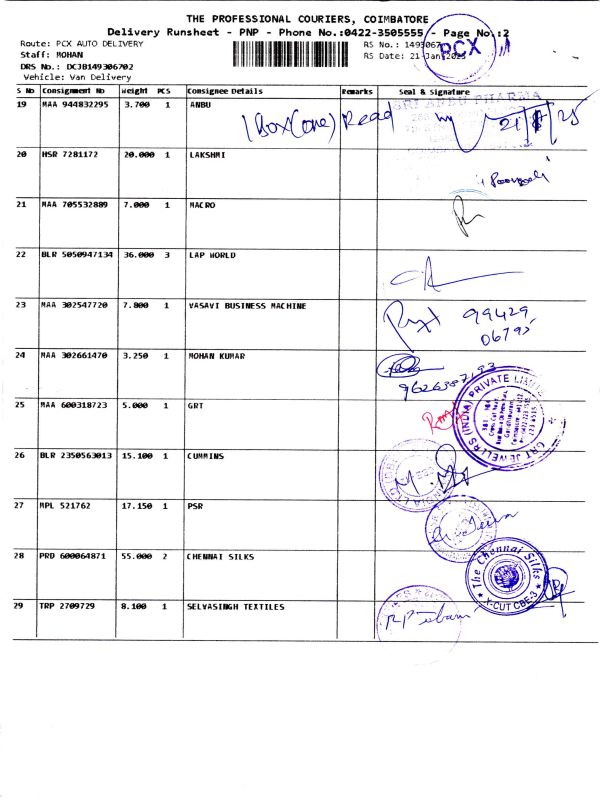 THE PROFESSIONAL COURIERS, COIMBATORE
Delivery Runsheet - PNP - Phone No.:0422-3505555 - Page No.:2
Route: PCX AUTO DELIVERY
RS No.: 1493067
PCX
Staff: MOHAN
RS Date: 21-Jan-2025
DRS No.: DCJB149306702
Vehicle: Van Delivery
S No Consignment No Weight PCS Consignee Details Remarks Seal & Signature
19 MAA 944832295 3.700 1 ANBU
SRI ANBU PHARMA
1 Box (one) Read
20 HSR 7281172 20.000 1 LAKSHMI
21 MAA 705532889 7.000 1 MACRO
22 BLR 5050947134 36.000 3 LAP WORLD
23 MAA 302547720 7.800 1 VASAVI BUSINESS MACHINE
99429
06795
24 MAA 302661470 3.250 1 MOHAN KUMAR
9626387193
25 MAA 600318723 5.000 1 GRT
GRT JEWELLERS (INDIA) PRIVATE LIMITED
26 BLR 2350563013 15.100 1 CUMMINS
27 MPL 521762 17.150 1 PSR
28 PRD 600064871 55.000 2 CHENNAI SILKS
The Chennai Silks
X-CUT CBE-3
29 TRP 2709729 8.100 1 SELVASINGH TEXTILES